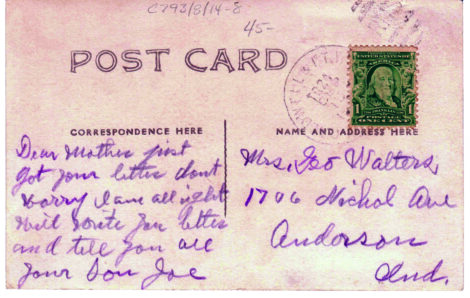 C793/8/14-8
45-
POST CARD
CORRESPONDENCE HERE
NAME AND ADDRESS HERE
1
ONE CENT
Dear Mother just
got your letter dont
worry I am all right
will write you letter
and tell you all
your Son Joe
Mrs. Geo Walters,
1706 Nichol Ave
Anderson
Ind.